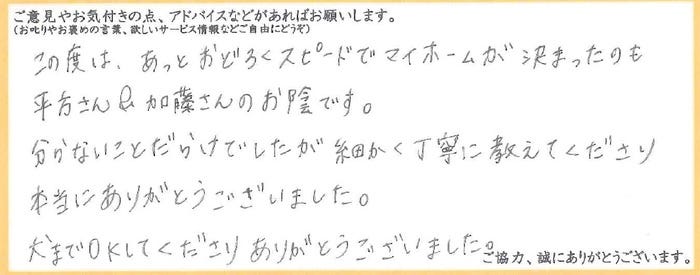 ご意見やお気付きの点、アドバイスなどがあればお願いします。
(お叱りやお褒めの言葉、欲しいサービス情報などご自由にどうぞ)
この度は、あっとおどろくスピードでマイホームが決まったのも
平方さん&加藤さんのお陰です。
分からないことだらけでしたが細かく丁寧に教えてくださり
本当にありがとうございました。
犬までOKしてくださりありがとうございました。
ご協力、誠にありがとうございます。